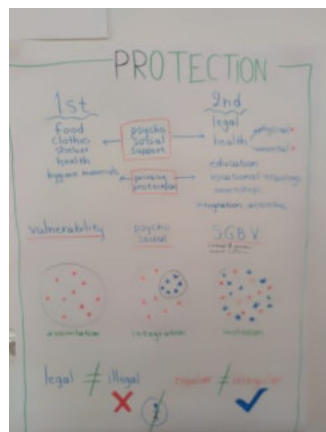 PROTECTION
1st
2nd
food
clothes
shelter
health
hygiene materials
psycho
social
support
legal
health
physical
mental
education
vocational trainings
integration activities
primary
protection
vulnerability
psycho
social
S.G.B.V.
assimilation
integration
inclusion
legal ≠ illegal
regular ≠ irregular